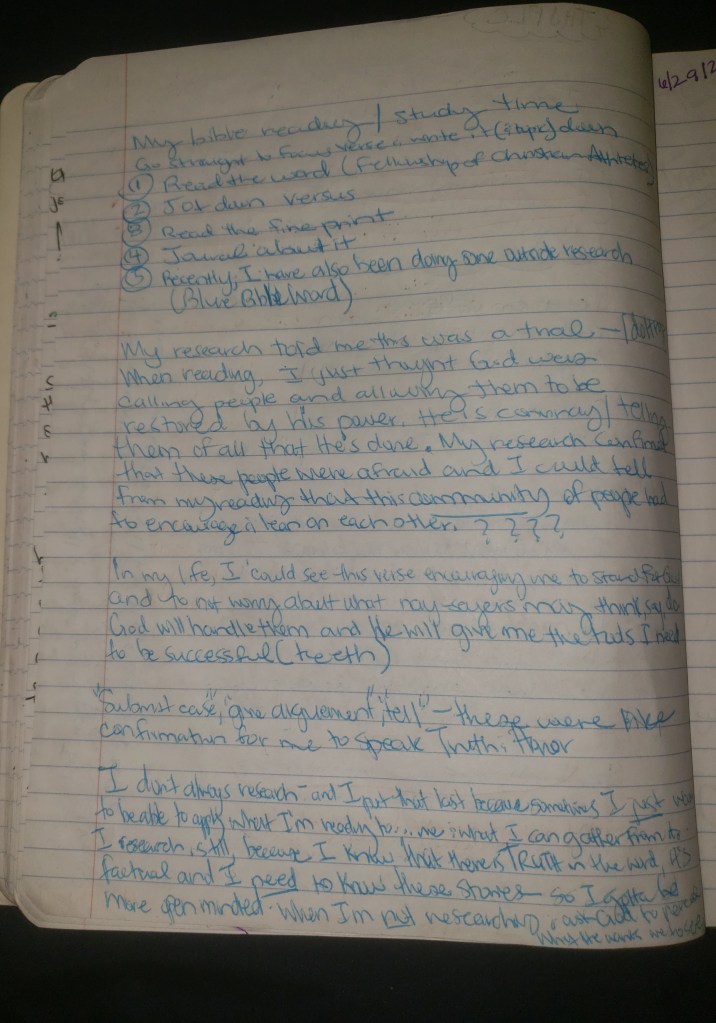 6/29/2
My bible reading / study time
Go straight to focus verse & write it (& topic) down
① Read the word (Fellowship of Christian Athletes)
② Jot down versus
③ Read the fine print
④ Jounal about it
⑤ Recently, I have also been doing some outside research
(Blue Bible Word)
My research told me this was a trial –
When reading, I just thought God was
calling people and allowing them to be
restored by his power. He is / telling
them of all that He's done. My research confirmed
that these people were afraid and I could tell
from my reading that this community of people had
to encourage & lean on each other. ????
In my life, I could see this verse encouraging me to stand for God
and to not worry about what nay-sayers may think, say, do
God will handle them and He will give me the tools I need
to be successful (teeth)
"Submit case", "give arguement", "tell" – these were like
confirmation for me to speak Truth & Honor
I don't always research – and I put that last because sometimes I just want
to be able to apply what I'm reading to... me & what I can gather from it.
I research, still, because I know that there is TRUTH in the word, it's
factual and I need to know these stories – so I gotta be
more open minded. When I'm not researching, I ask God to
what He wants me to see